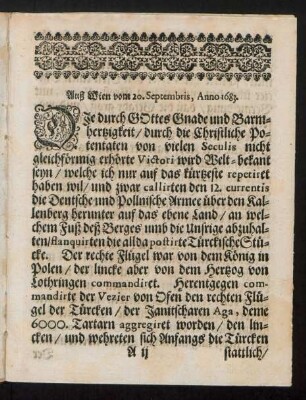 Auß Wien vom 20. Septembris, Anno 1683.
Die durch GOttes Gnade und Barm-
hertzigkeit / durch die Christliche Po-
tentaten von vielen Seculis nicht
gleichförmig erhörte Victori wird Welt-bekant
seyn / welche ich nur auf das kürtzeste repetiret
haben wil / und zwar callirten den 12. currentis
die Deutsche und Pollnische Armee über den Kal-
lenberg herunter auf das ebene Land / an wel-
chem Fuß deß Berges umb die Unsrige abzuhal-
ten / flanquirten die allda postirte Türckische Stü-
cke. Der rechte Flügel war von dem König in
Polen / der lincke aber von dem Hertzog von
Lothringen commandiret. Herentgegen com-
mandirte der Vezier von Ofen den rechten Flü-
gel der Türcken / der Janitscharen Aga, deme
6000. Tartarn aggregiret worden / den lin-
cken / und wehreten sich Anfangs die Türcken
A ij stattlich /